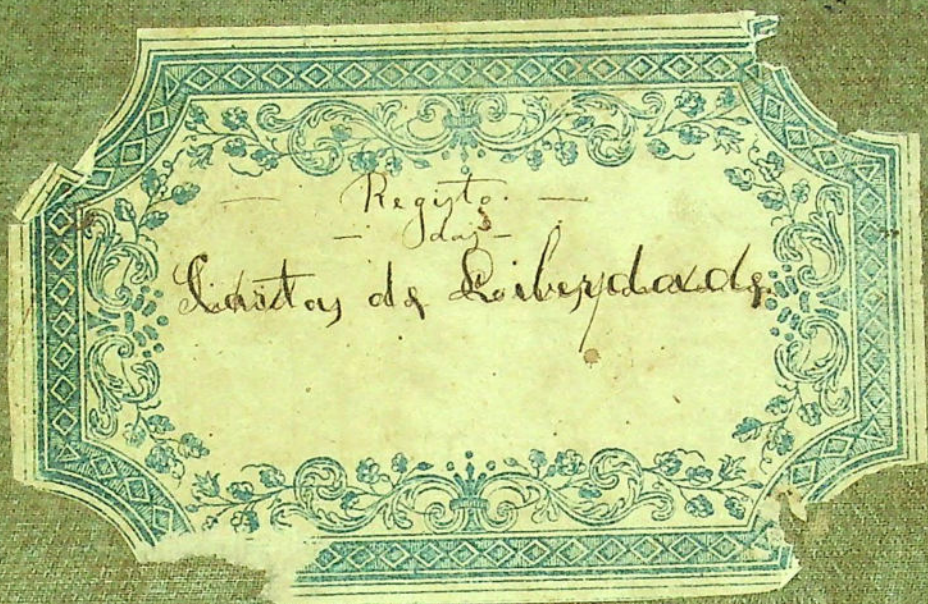 — Registo. —
— das —
Cartas de Liberdade.